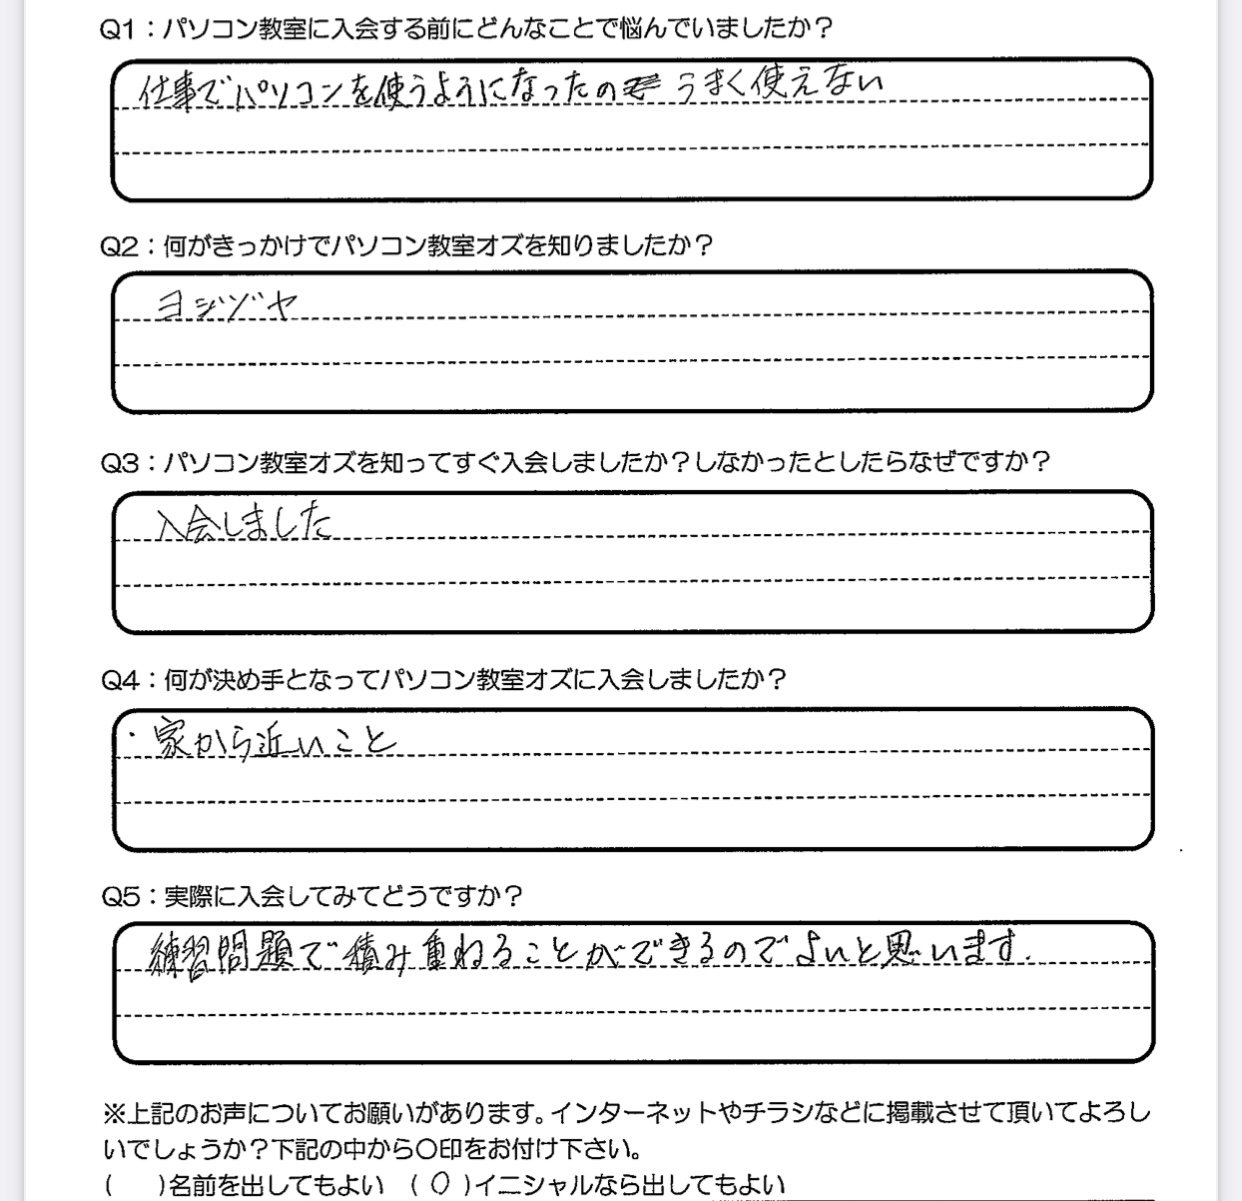 Q1：パソコン教室に入会する前にどんなことで悩んでいましたか？
仕事でパソコンを使うようになったの うまく使えない
Q2：何がきっかけでパソコン教室オズを知りましたか？
ヨジヅヤ
Q3：パソコン教室オズを知ってすぐ入会しましたか？しなかったとしたらなぜですか？
入会しました
Q4：何が決め手となってパソコン教室オズに入会しましたか？
・家から近いこと
Q5：実際に入会してみてどうですか？
練習問題で積み重ねることができるのでよいと思います.
※上記のお声についてお願いがあります。インターネットやチラシなどに掲載させて頂いてよろし
いでしょうか？下記の中から〇印をお付け下さい。
(　)名前を出してもよい　( 〇 )イニシャルなら出してもよい